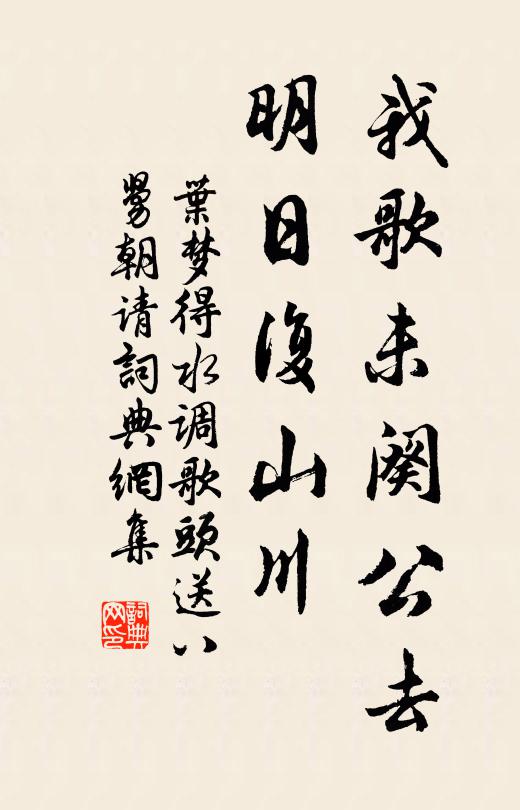 我歌未阕公去
明日復山川
葉梦得水调歌頭送八
舅朝请詞典網集
詞典网印